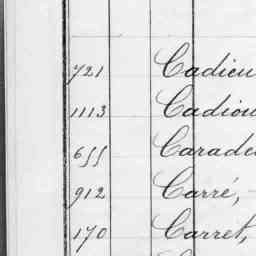 721 Cadieu
1113 Cadiou
655 Carade
912 Carré,
170 Carret,